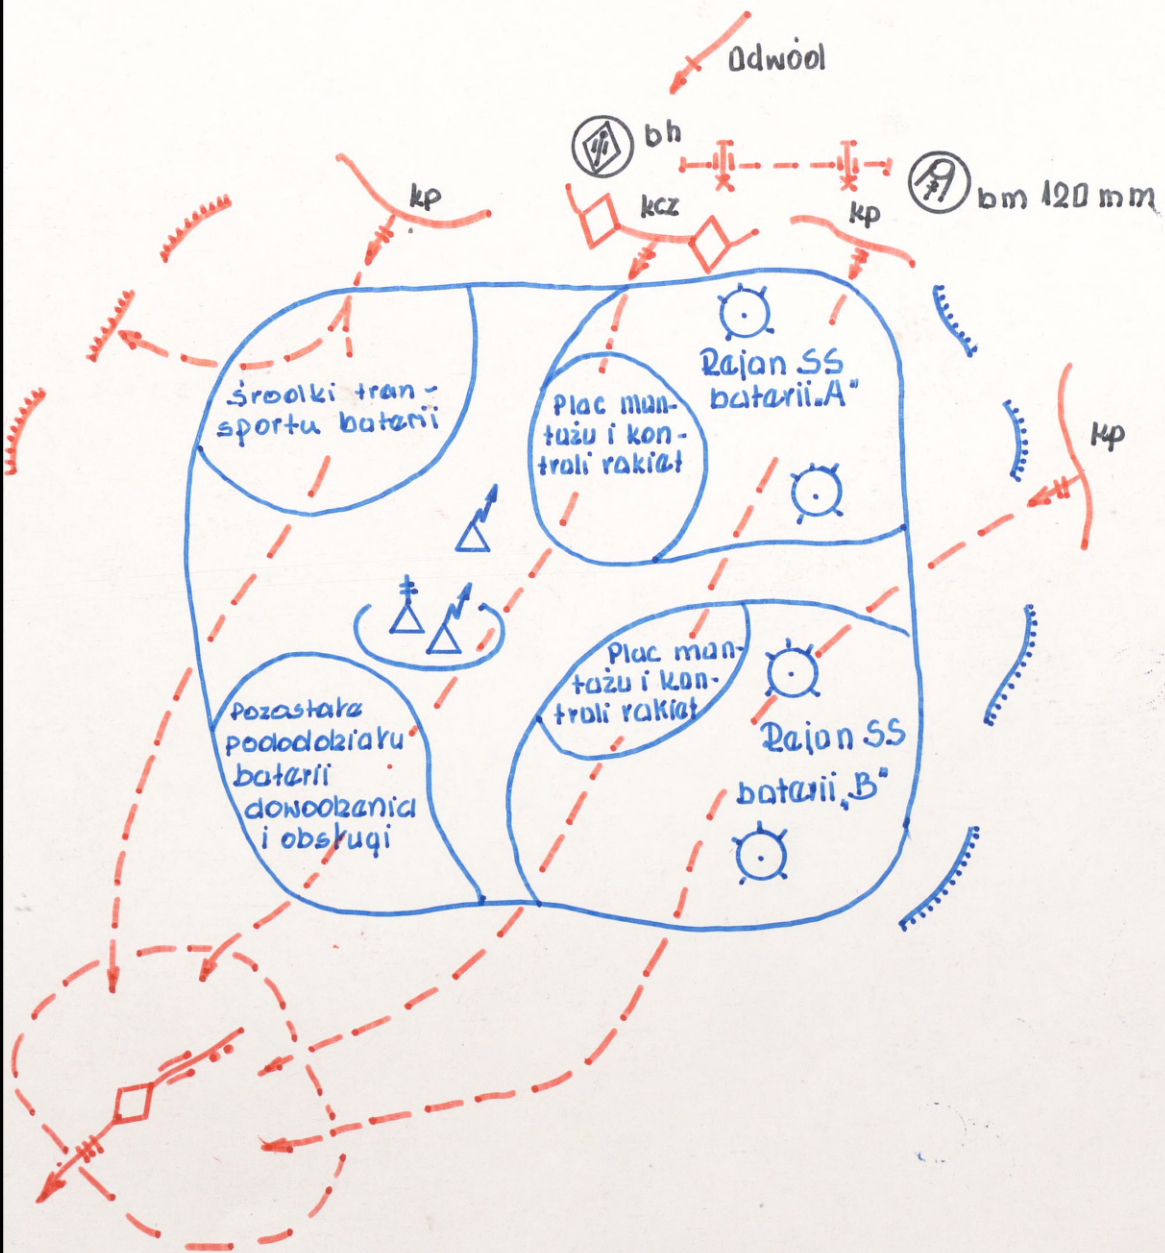 Odwód
bh
bm 120 mm
kp
kcz
kp
kp
środki tran-
sportu baterii
Plac mon-
tażu i kon-
troli rakiet
Rejon SS
baterii „A"
Plac mon-
tażu i kon-
troli rakiet
Rejon SS
baterii „B"
Pozostałe
pododdziały
baterii
dowodzenia
i obsługi